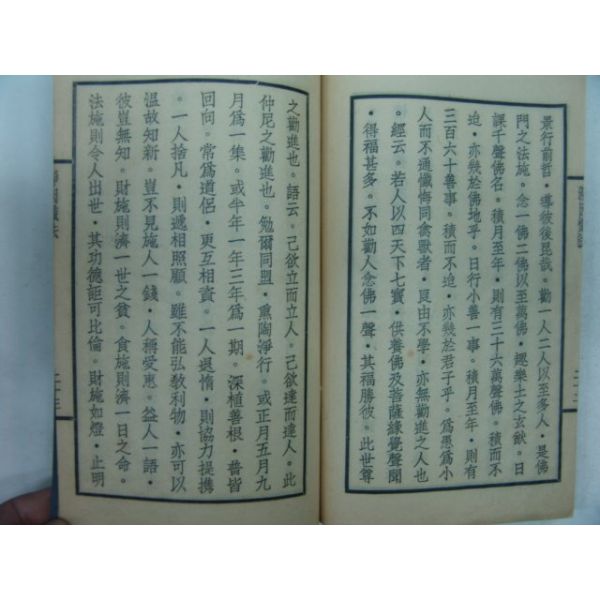 景行前哲。導彼後昆哉。勸一人二人以至多人。是佛
門之法施。念一佛二佛以至萬佛。趣樂土之玄猷。日
課千聲佛名。積月至年。則有三十六萬聲佛。積而不
迨。亦幾於佛地乎。日行小善一事。積月至年。則有
三百六十善事。積而不迨。亦幾於君子乎。爲愚爲小
人而不通懺悔同禽獸者。良由不學。亦無勸進之人也
。經云。若人以四天下七寶。供養佛及菩薩緣覺聲聞
。得福甚多。不如勸人念佛一聲。其福勝彼。此世尊
之勸進也。語云。己欲立而立人。己欲達而達人。此
仲尼之勸進也。勉爾同盟。熏陶淨行。或正月五月九
月爲一集。或半年一年三年爲一期。深植善根。普皆
回向。常爲道侶。更互相資。一人退惰。則協力提携
。一人捨凡。則遞相照顧。雖不能弘敎利物。亦可以
溫故知新。豈不見施人一錢。人稱愛惠。益人一語。
彼豈無知。財施則濟一世之貧。食施則濟一日之命。
法施則令人出世。其功德詎可比倫。財施如燈。止明